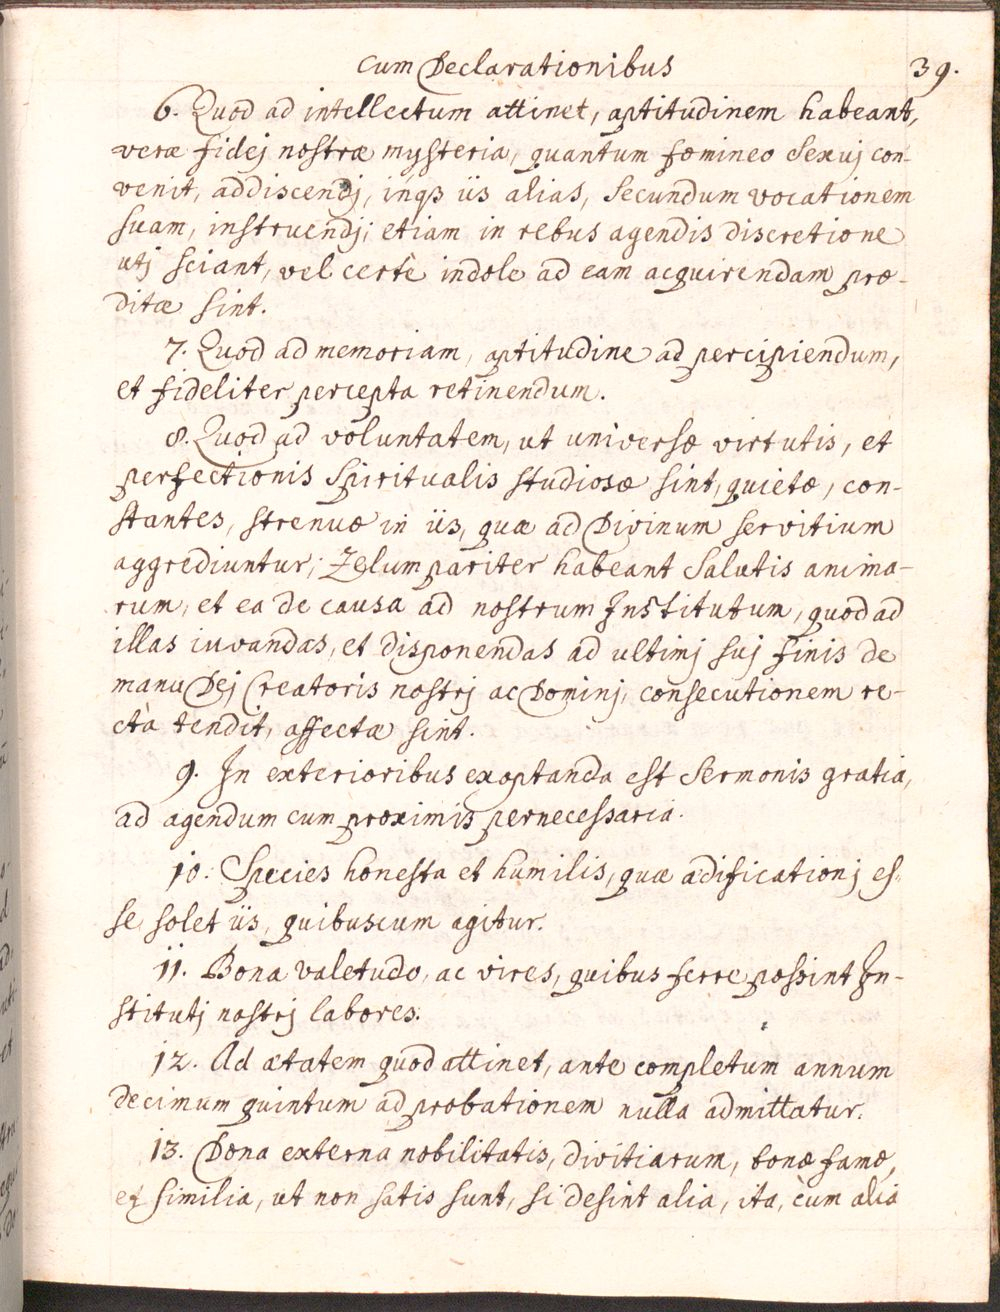 Cum Declarationibus 39.
6. Quod ad intellectum attinet, aptitudinem habeant,
veræ fidej nostræ mysteria, quantum fœmineo Sexuj con-
venit, addiscendj, inqȝ iis alias, Secundum vocationem
suam, instruendj; etiam in rebus agendis discretione
utj sciant, vel certè indole ad eam acquirendam præ-
ditæ sint.
7. Quod ad memoriam, aptitudine ad percipiendum,
et fideliter percepta retinendum.
8. Quod ad voluntatem, ut universæ virtutis, et
perfectionis Spiritualis studiosæ sint, quietæ, con-
stantes, strenuæ in iis, quæ ad Divinum servitium
aggrediuntur; Zelum pariter habeant Salutis anima-
rum, et ea de causa ad nostrum Institutum, quod ad
illas iuvandas, et disponendas ad ultimj suj finis de
manu Dej Creatoris nostrj ac Dominj, consecutionem re-
ctà tendit, affectæ sint.
9. In exterioribus exoptanda est Sermonis gratia,
ad agendum cum proximis pernecessaria.
10. Species honesta et humilis, quæ ædificationj es-
se solet iis, quibuscum agitur.
11. Bona valetudo, ac vires, quibus ferre possint In-
stitutj nostrj labores.
12. Ad ætatem quod attinet, ante completum annum
decimum quintum ad probationem nulla admittatur.
13. Dona externa nobilitatis, divitiarum, bonæ famæ,
et similia, ut non satis sunt, si desint alia, ita, cùm alia